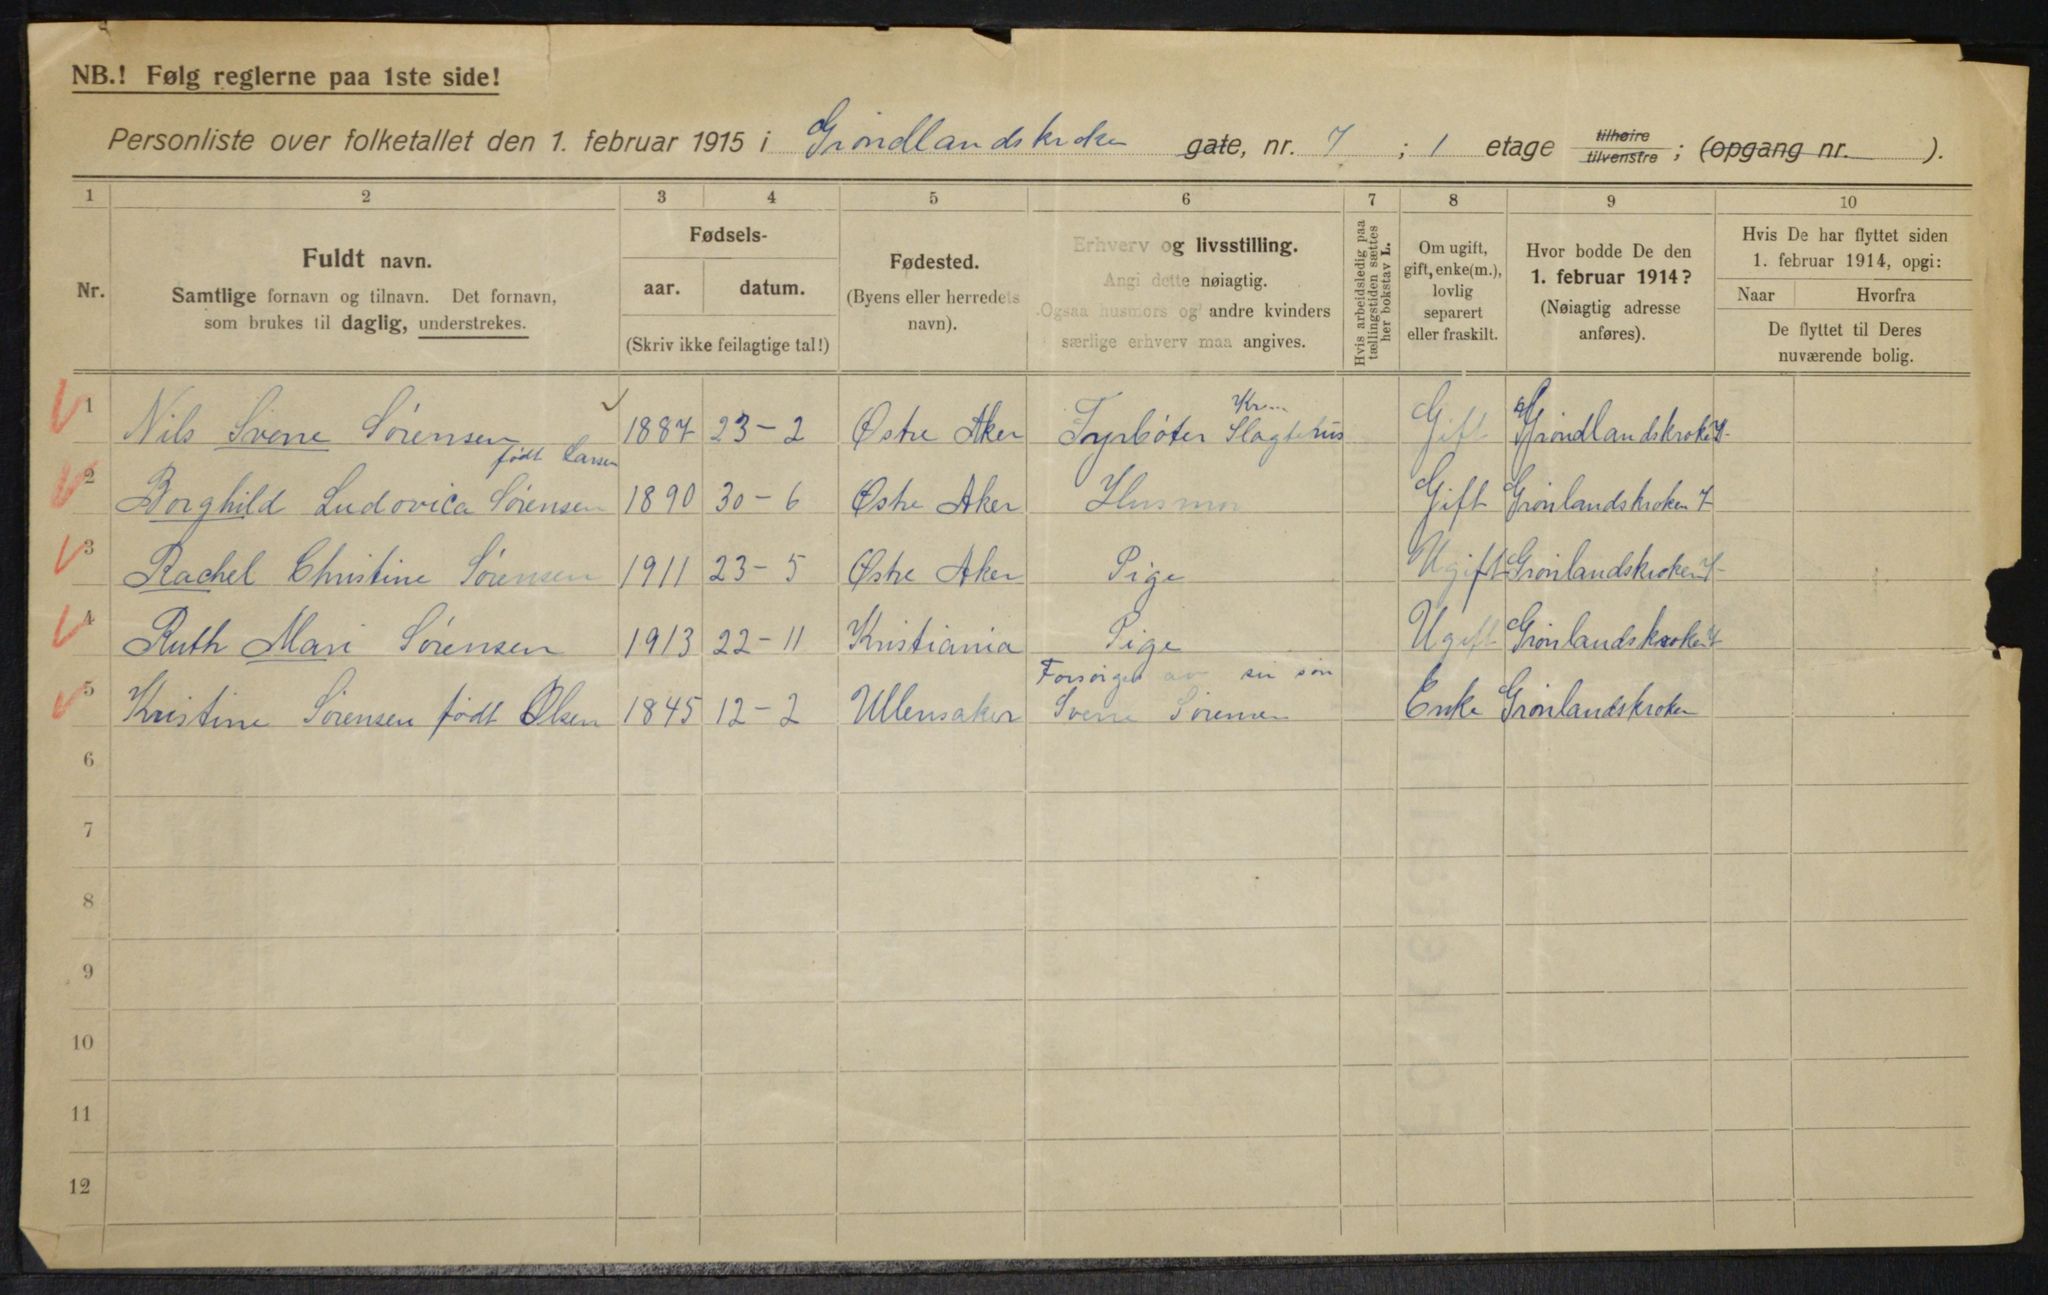 NB.! Følg reglerne paa 1ste side!
Personliste over folketallet den 1. februar 1915 i Grøndlandskroken gate, nr. 7 ; 1 etage tilhøire tilvenstre ; (opgang nr. ).
1 2 3 4 5 6 7 8 9 10
Nr.
Fuldt navn.
Samtlige fornavn og tilnavn. Det fornavn,
som brukes til daglig, understrekes.
Fødsels-
aar. datum.
(Skriv ikke feilagtige tal!)
Fødested.
(Byens eller herredets
navn).
Erhverv og livsstilling.
Angi dette nøiagtig.
Ogsaa husmors og andre kvinders
særlige erhverv maa angives.
Hvis arbeidsledig paa
tællingstiden sættes
her bokstav L.
Om ugift,
gift, enke(m.),
lovlig
separert
eller fraskilt.
Hvor bodde De den
1. februar 1914?
(Nøiagtig adresse
anføres).
Hvis De har flyttet siden
1. februar 1914, opgi:
Naar Hvorfra
De flyttet til Deres
nuværende bolig.
1 Nils Sverre Sørensen 1887 23-2 Østre Aker Fyrbøter Kr. Slagtehus Gift Grøndlandskroken 7
født Larsen
2 Borghild Ludovica Sørensen 1890 30-6 Østre Aker Husmor Gift Grønlandskroken 7
3 Rachel Christine Sørensen 1911 23-5 Østre Aker Pige Ugift Grønlandskroken 7
4 Ruth Mari Sørensen 1913 22-11 Kristiania Pige Ugift Grønlandskroken 7
Forsørges av sin søn
5 Kristine Sørensen født Olsen 1845 12-2 Ullensaker Sverre Sørensen Enke Grønlandskroken
6
7
8
9
10
11
12